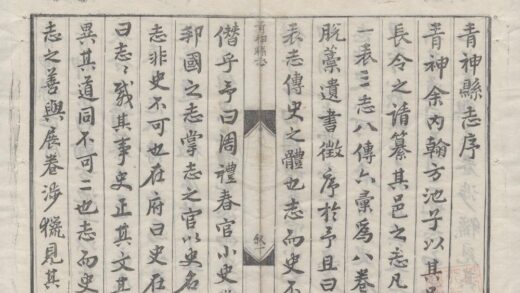 青神縣志序
青神余內翰方池子以其
長令之請纂其邑之志凡
一表三志八傳六彙為八卷
脫藁遺書徵序於予且曰
表志傳史之體也志而史不
青神縣志
敘一
僭乎予曰周禮春官小史
邦國之志掌志之官以史名
志非史不可也在府曰史在
曰志志載其事史正其文其
異其道同不可二也志而史
志之善與展卷涉獵見其